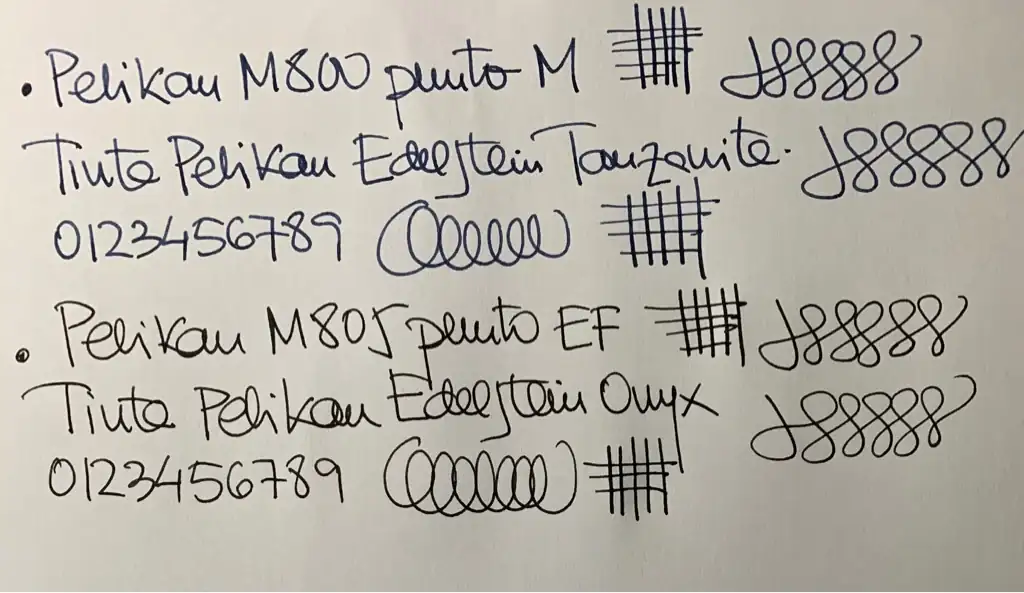 • Pelikan M800 punto M
Tinta Pelikan Edelstein Tanzanite.
0123456789
• Pelikan M805 punto EF
Tinta Pelikan Edelstein Onyx
0123456789